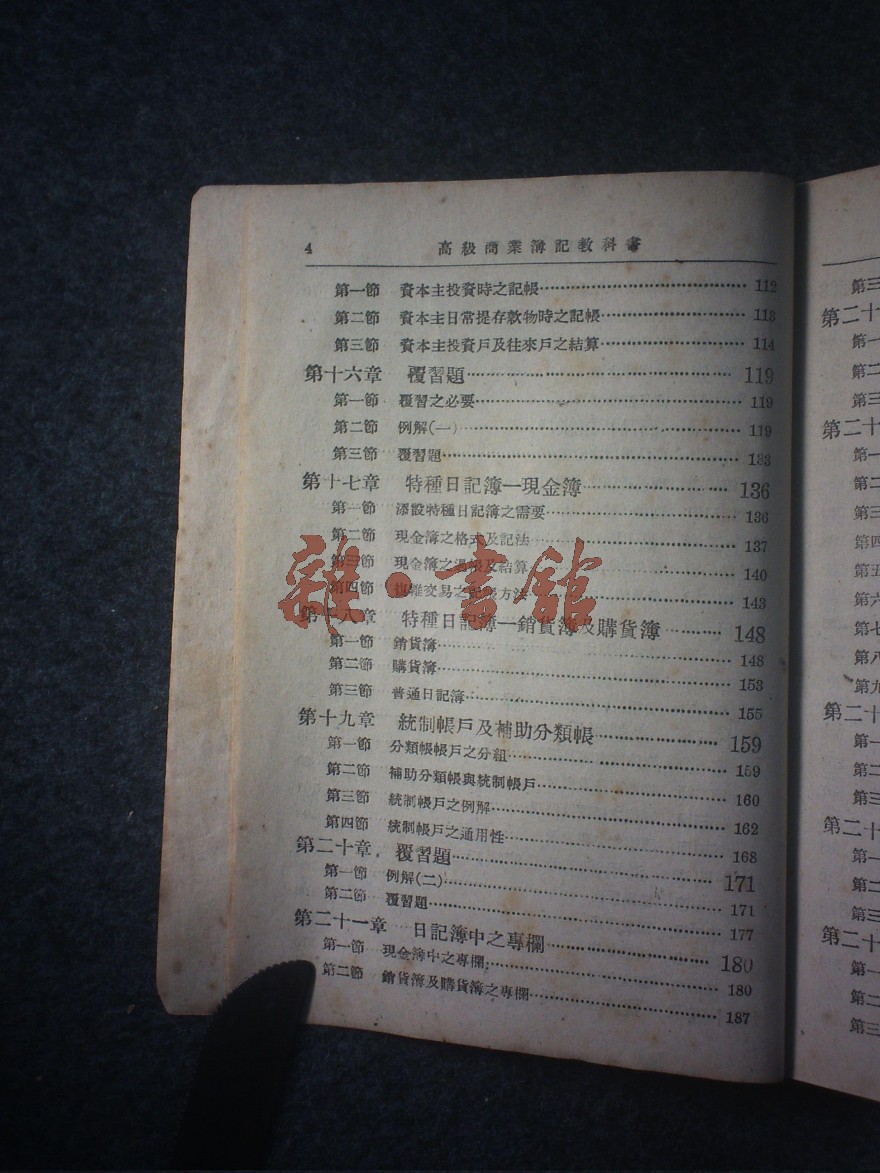 4 高級商業簿記教科書
第一節 資本主投資時之記帳 112
第二節 資本主日常提存欵物時之記帳 113
第三節 資本主投資戶及往來戶之結算 114
第十六章 覆習題 119
第一節 覆習之必要 119
第二節 例解(一) 119
第三節 覆習題 133
第十七章 特種日記簿—現金簿 136
第一節 添設特種日記簿之需要 136
第二節 現金簿之格式及記法 137
第三節 現金簿之過帳及結算 140
第四節 複雜交易之記錄方法 143
第十八章 特種日記簿—銷貨簿及購貨簿 148
第一節 銷貨簿 148
第二節 購貨簿 153
第三節 普通日記簿 155
第十九章 統制帳戶及補助分類帳 159
第一節 分類帳帳戶之分組 159
第二節 補助分類帳與統制帳戶 160
第三節 統制帳戶之例解 162
第四節 統制帳戶之通用性 168
第二十章 覆習題 171
第一節 例解(二) 171
第二節 覆習題 177
第二十一章 日記簿中之專欄 180
第一節 現金簿中之專欄 180
第二節 銷貨簿及購貨簿之專欄 187
雜·書館
第三
第二十
第一
第二
第三
第二十
第一
第二
第三
第四
第五
第六
第七
第八
第九
第二十
第一
第二
第三
第二十
第一
第二
第三
第二十
第一
第二
第三